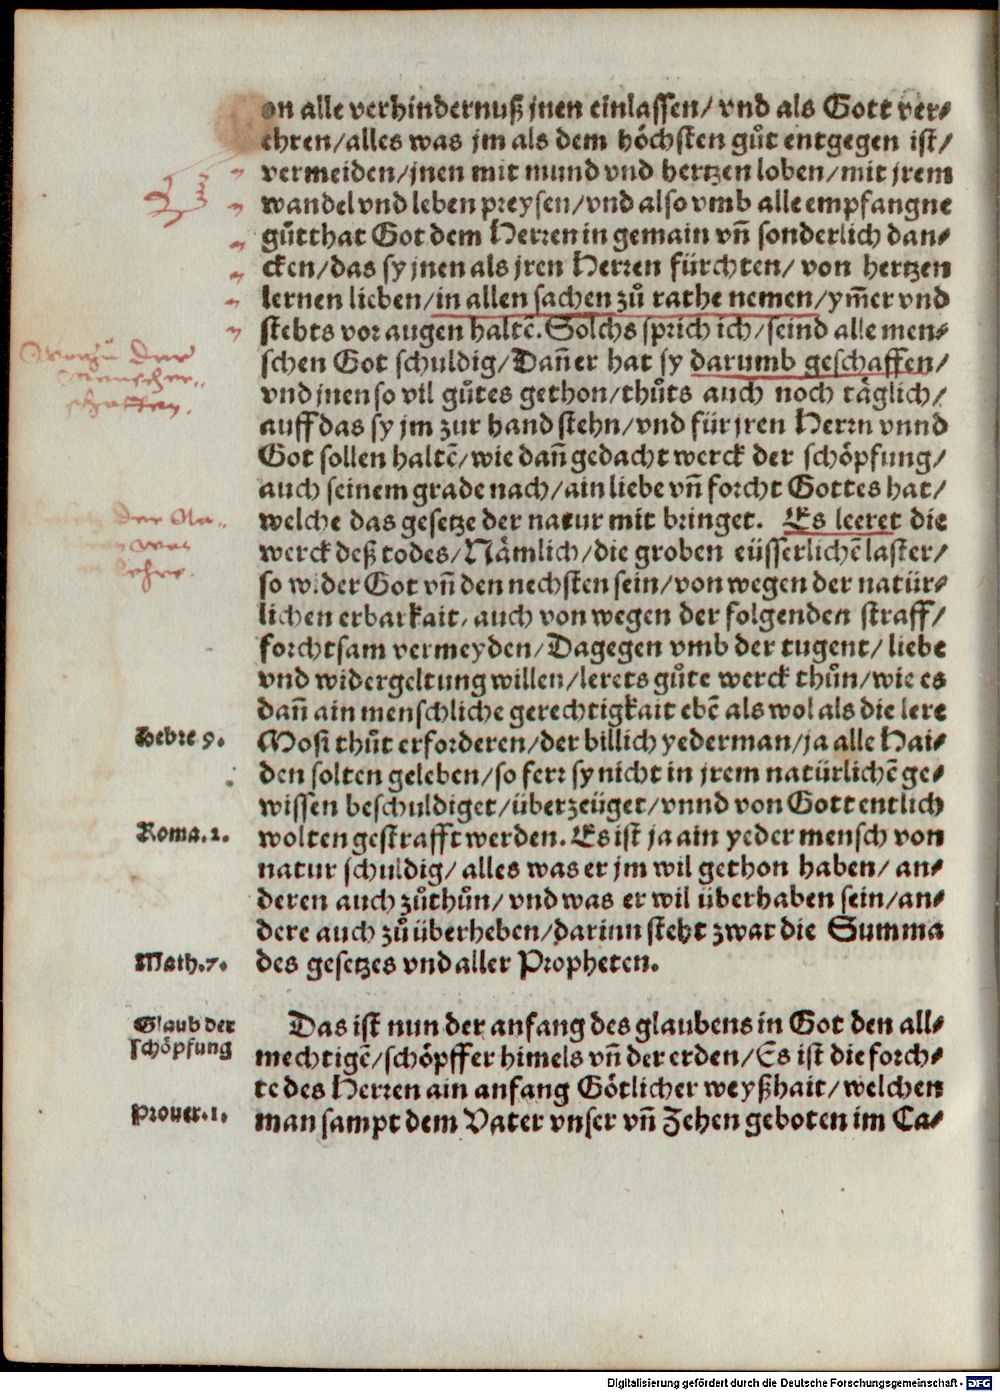 on alle verhindernuß jnen einlassen/ vnd als Gott ver⸗
ehren/alles was jm als dem höchsten gůt entgegen ist/
vermeiden/jnen mit mund vnd hertzen loben/mit jrem
wandel vnd leben preysen/vnd also vmb alle empfangne
gůtthat Got dem Herren in gemain vñ sonderlich dan⸗
cken/das sy jnen als jren Herren fürchten/ von hertzen
lernen lieben/in allen sachen zů rathe nemen/ym̃er vnd
stehts vor augen haltẽ. Solchs sprich ich/seind alle men⸗
schen Got schuldig/Dañ er hat sy darumb geschaffen/
vnd jnen so vil gůtes gethon/thůts auch noch täglich/
auff das sy jm zur hand stehn/vnd für jren Herrn vnnd
Got sollen haltẽ/wie dañ gedacht werck der schöpfung/
auch seinem grade nach/ain liebe vñ forcht Gottes hat/
welche das gesetze der natur mit bringet. Es leeret die
werck deß todes/Nämlich/die groben eüsserlichẽ laster/
so wider Got vñ den nechsten sein/von wegen der natür⸗
lichen erbarkait, auch von wegen der folgenden straff/
forchtsam vermeyden/Dagegen vmb der tugent/ liebe
vnd widergeltung willen/lerets gůte werck thůn/wie es
dañ ain menschliche gerechtigkait ebẽ als wol als die lere
Mosi thůt erforderen/der billich yederman/ja alle Hai⸗
den solten geleben/so ferr sy nicht in jrem natürlichẽ ge⸗
wissen beschuldiget/überzeüget/vnnd von Gott entlich
wolten gestrafft werden. Es ist ja ain yeder mensch von
natur schuldig/ alles was er jm wil gethon haben/ an⸗
deren auch zůthůn/ vnd was er wil überhaben sein/an⸗
dere auch zů überheben/darinn steht zwar die Summa
des gesetzes vnd aller Propheten.
Das ist nun der anfang des glaubens in Got den all⸗
mechtigẽ/schöpffer himels vñ der erden/Es ist die forch⸗
te des Herren ain anfang Götlicher weyßhait/welchen
man sampt dem Vater vnser vñ Zehen geboten im Ca⸗
Wozu der
Menscher
schaffen.
der Na
lehre.
Hebre 9.
Roma. 2.
Math. 7.
Glaub der
schöpfung
Prouer. 1.
Digitalisierung gefördert durch die Deutsche Forschungsgemeinschaft - DFG